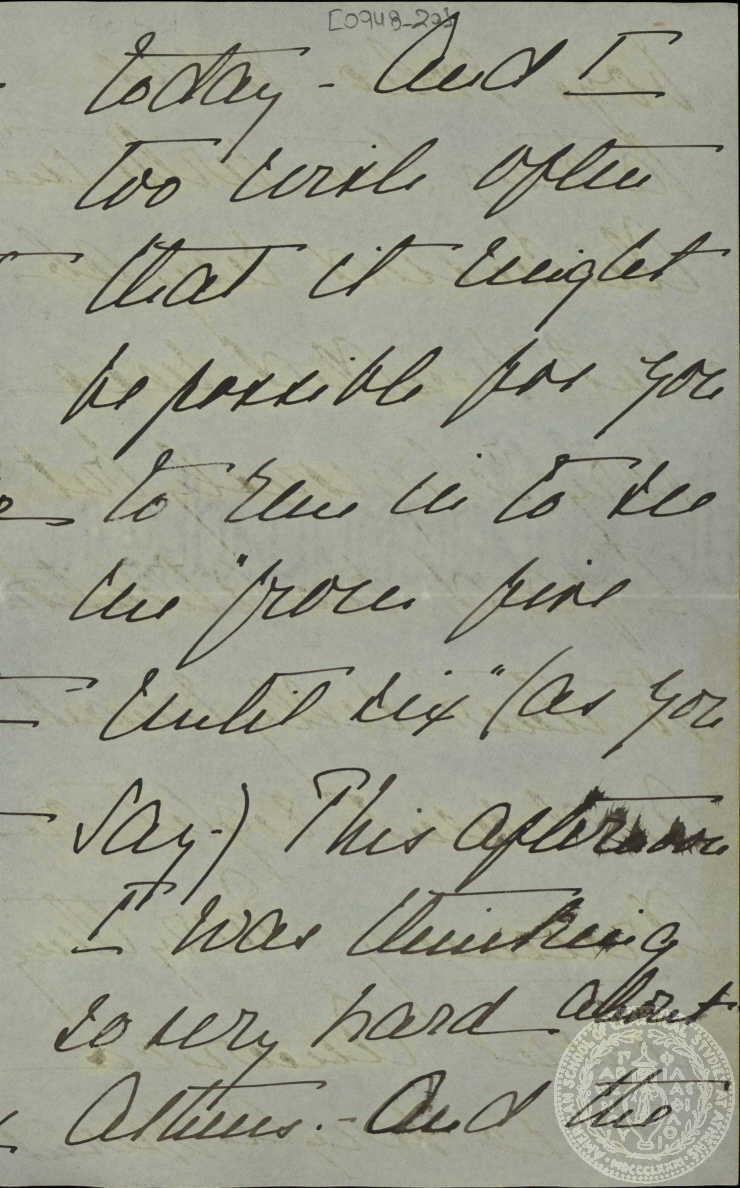 [0948-20]
today - And I
too wish often
that it might
be possible for you
to run in to see
me "from five
until six" (as you
say-) This afternoon
I was thinking
so very hard about
Athens. - And the